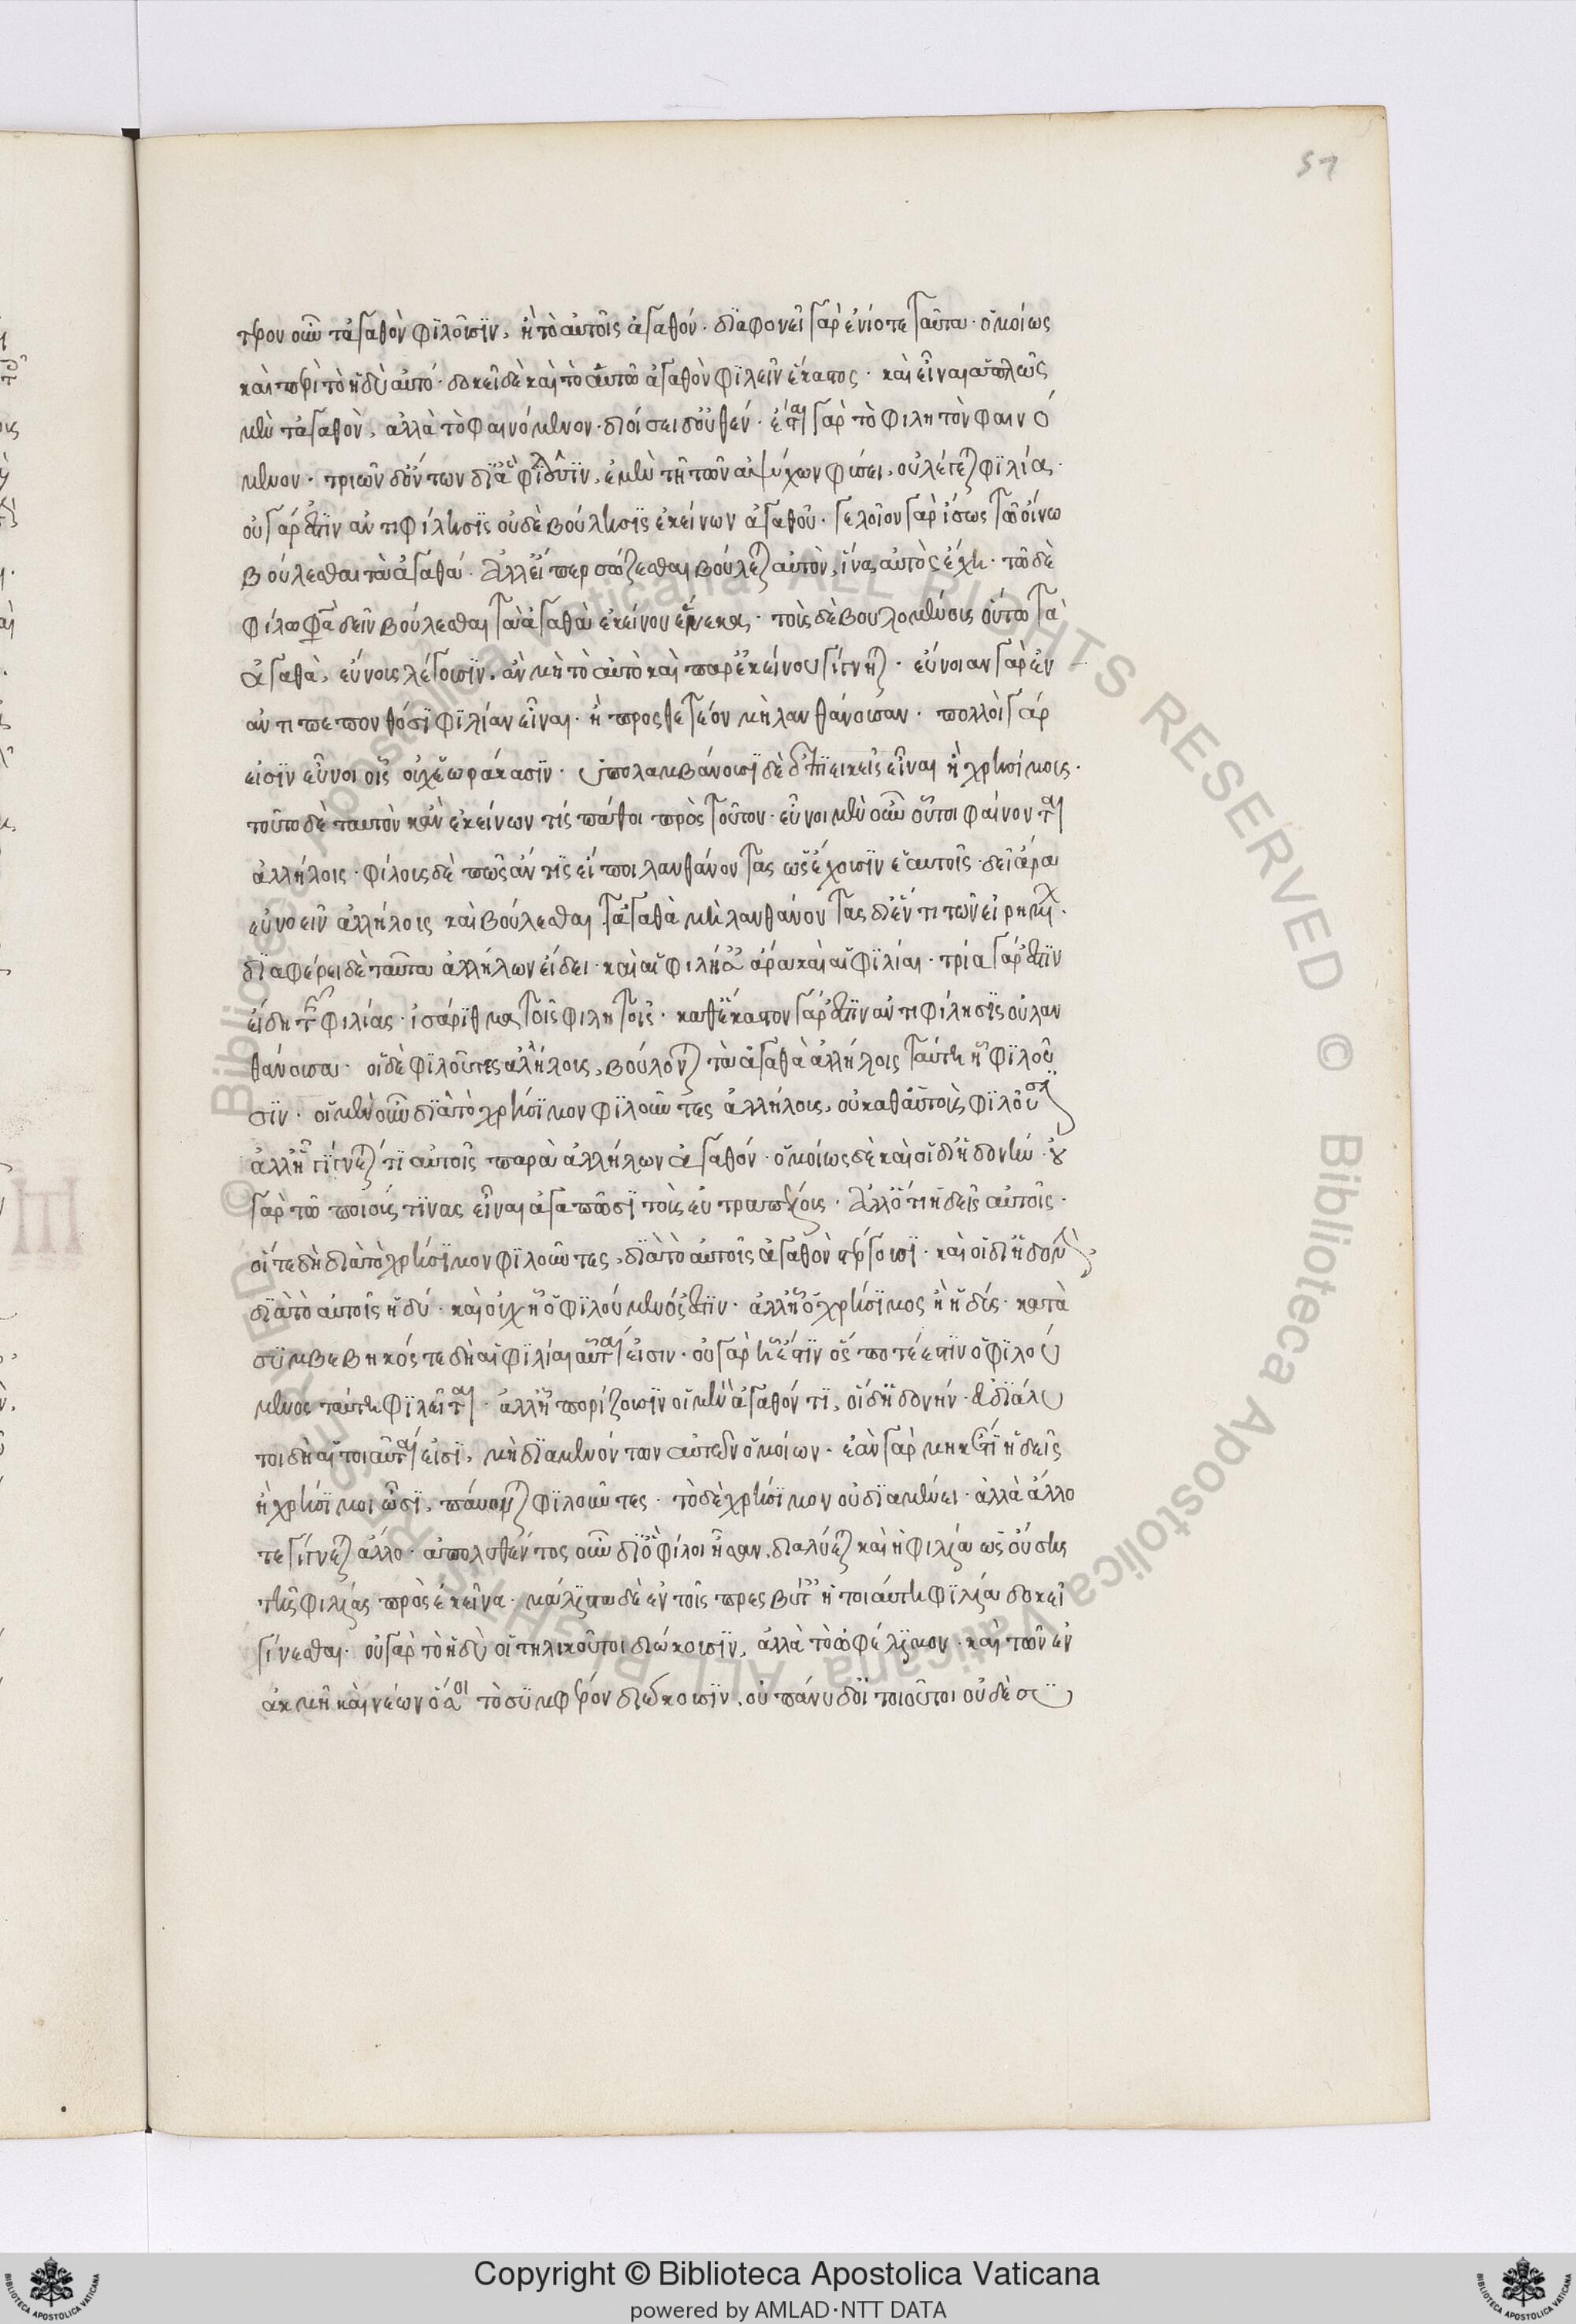 51
τερον οὖν τἀγαθὸν φιλοῦσιν, ἢ τὸ αὐτοῖς ἀγαθόν· διαφονεῖ γὰρ ἐνίοτε ταῦτα· ὁμοίως
καὶ περὶ τὸ ἡδὺ αὐτό· δοκεῖ δὲ καὶ τὸ αὑτῶ ἀγαθὸν φιλεῖν ἕκαστος· καὶ εἶναι ἁπλῶς
μὲν τἀγαθὸν, ἀλλὰ τὸ φαινόμενον· διοίσει δ'οὐθέν· ἔσται γὰρ τὸ φιλητὸν φαινό
μενον· τριῶν δ'ὄντων δι' ἃ φιλοῦσιν, ἐπὶ μὲν τῆ τῶν ἀψύχων φιλήσει, οὐ λέγεται φιλία·
οὐ γάρ ἐστιν ἀντιφίλησις οὐδὲ βούλησις ἐκείνων ἀγαθοῦ· γελοῖον γὰρ ἴσως τῶ οἴνω
βούλεσθαι τὰ ἀγαθά· ἀλλ' εἴπερ σώζεσθαι βούλεται αὐτὸν, ἵνα αὐτὸς ἔχη· τῶ δὲ
φίλω φασὶ δεῖν βούλεσθαι τὰ ἀγαθὰ ἐκείνου ἕνεκα· τοὺς δὲ βουλομένους οὕτω τὰ
ἀγαθὰ, εὔνους λέγουσιν, ἂν μὴ τὸ αὐτὸ καὶ παρ' ἐκείνου γίγνηται· εὔνοιαν γὰρ ἐν
ἀντιπεπονθόσι φιλίαν εἶναι· ἢ προσθετέον μὴ λανθάνουσαν· πολλοὶ γάρ
εἰσιν εὖνοι οἷς οὐχ ἑωράκασιν· ὑπολαμβάνουσι δὲ ἐπιεικεῖς εἶναι ἢ χρησίμους·
τοῦτο δὲ ταυτὸν κἂν ἐκείνων τίς πάθοι πρὸς τοῦτον· εὖνοι μὲν οὖν οὗτοι φαίνονται
ἀλλήλοις· φίλους δὲ πῶς ἄν τις εἴποι λανθάνοντας ὡς ἔχουσιν ἑαυτοῖς· δεῖ ἄρα
εὐνοεῖν ἀλλήλοις καὶ βούλεσθαι τἀγαθὰ μὴ λανθάνοντας δι' ἕν τι τῶν εἰρημένων·
διαφέρει δὲ ταῦτα ἀλλήλων εἴδει· καὶ αἱ φιλήσεις ἄρα καὶ αἱ φιλίαι· τρία γάρ ἐστιν
εἴδη τῆς φιλίας· ἰσάριθμα τοῖς φιλητοῖς· καθ' ἕκαστον γάρ ἐστιν ἀντιφίλησις οὐ λαν
θάνουσα· οἱ δὲ φιλοῦντες ἀλλήλους, βούλονται τὰ ἀγαθὰ ἀλλήλοις ταύτη ἧ φιλοῦ
σιν· οἱ μὲν οὖν διὰ τὸ χρήσιμον φιλοῦντες ἀλλήλους, οὐ καθ' αὑτοὺς φιλοῦσιν
ἀλλ' ἧ γίγνεταί τι αὐτοῖς παρὰ ἀλλήλων ἀγαθόν· ὁμοίως δὲ καὶ οἱ δι' ἡδονήν· οὐ
γὰρ τῶ ποιούς τινας εἶναι ἀγαπῶσι τοὺς εὐτραπέλους· ἀλλ' ὅτι ἡδεῖς αὐτοῖς·
οἵ τε δὴ διὰ τὸ χρήσιμον φιλοῦντες, διὰ τὸ αὐτοῖς ἀγαθὸν στέργουσι· καὶ οἱ δι' ἡδονὴν,
διὰ τὸ αὐτοῖς ἡδύ· καὶ οὐχ ἧ ὁ φιλούμενός ἐστιν· ἀλλ' ἧ ὁ χρήσιμος ἢ ἡδύς· κατὰ
συμβεβηκός τε δὴ αἱ φιλίαι αὗται εἰσιν· οὐ γὰρ ἧ ἔστιν ὅς ποτέ ἐστιν ὁ φιλού
μενος ταύτη φιλεῖται· ἀλλ' ἧ πορίζουσιν οἱ μὲν ἀγαθόν τι, οἱ δ' ἡδονήν· εὐδιάλυ
τοι δὴ αἱ τοιαῦται εἰσι, μὴ διαμενόντων αὐτῶν ὁμοίων· ἐὰν γὰρ μηκέτι ἡδεῖς
ἢ χρήσιμοι ὦσι, παύονται φιλοῦντες· τὸ δὲ χρήσιμον οὐ διαμένει· ἀλλὰ ἄλλο
τε γίγνεται ἄλλο· ἀπολυθέντος οὖν δι' ὃ φίλοι ἦσαν, διαλύεται καὶ ἡ φιλία ὡς οὔσης
τῆς φιλίας πρὸς ἐκεῖνα· μάλιστα δὲ ἐν τοῖς πρεσβύταις ἡ τοιαύτη φιλία δοκεῖ
γίνεσθαι· οὐ γὰρ τὸ ἡδὺ οἱ τηλικοῦτοι διώκουσιν, ἀλλὰ τὸ ὠφέλιμον· καὶ τῶν ἐν
ἀκμῆ καὶ νέων ὅσοι τὸ συμφέρον διώκουσιν, οὐ πάνυ δ' οἱ τοιοῦτοι οὐδὲ συ
© Biblioteca Apostolica Vaticana ALL RIGHTS RESERVED
© Biblioteca Apostolica Vaticana ALL RIGHTS RESERVED
Copyright © Biblioteca Apostolica Vaticana
powered by AMLAD·NTT DATA